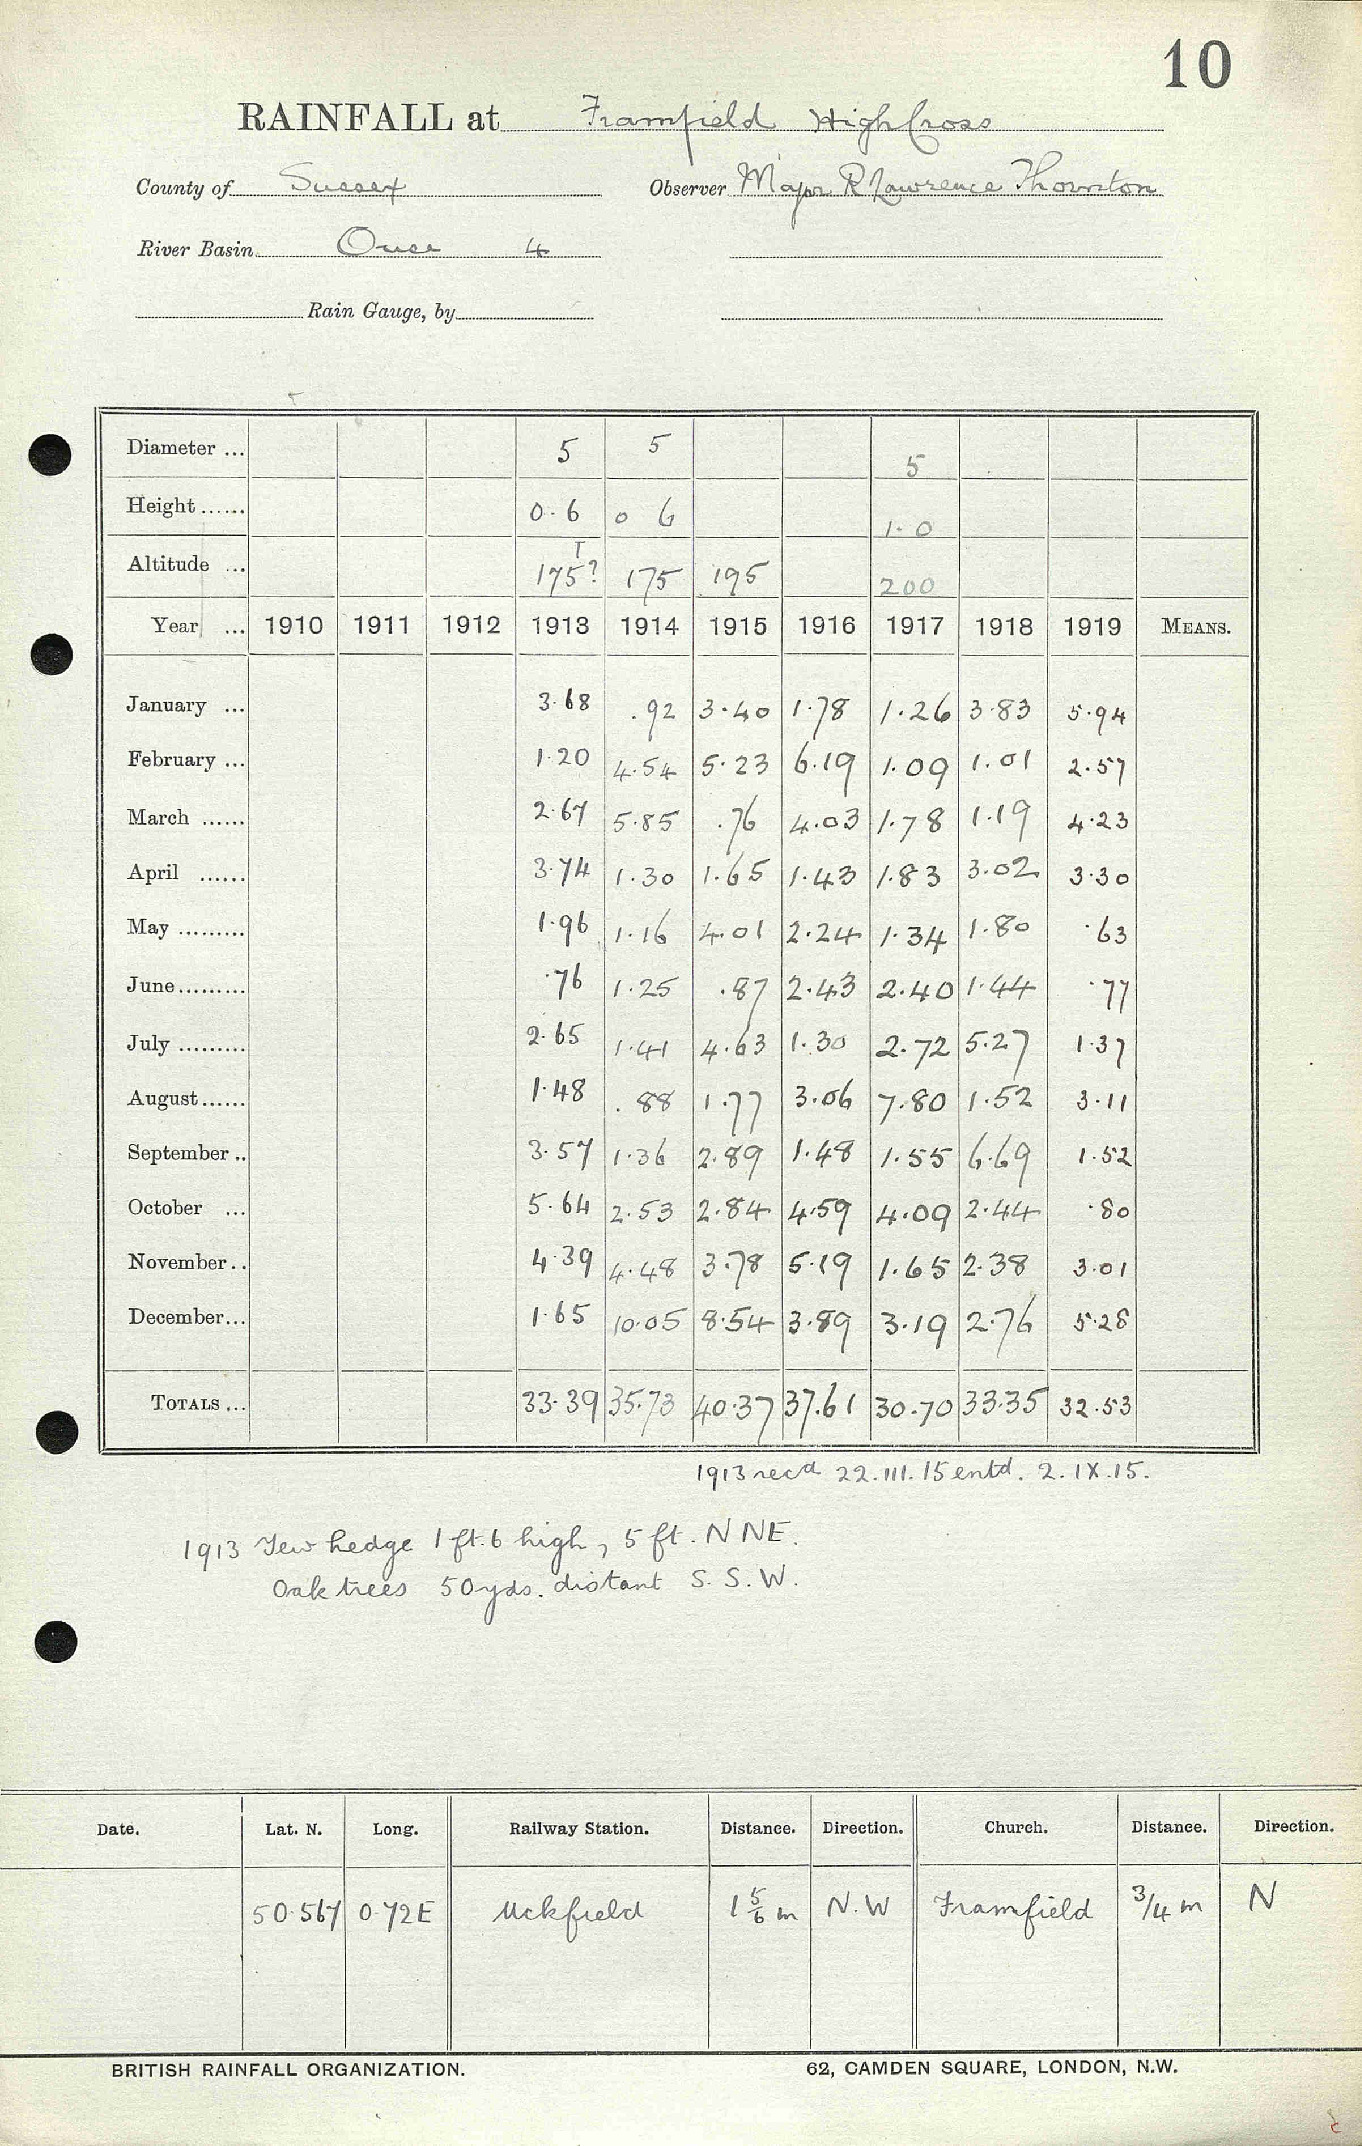 10
RAINFALL at Framfield High Cross
County of Sussex Observer Major R Lawrence Thornton
River Basin Ouse 4
Rain Gauge, by
Diameter ... 5 5 5
Height ...... 0.6 0 6 1.0
T
Altitude ... 175? 175 195 200
Year ... 1910 1911 1912 1913 1914 1915 1916 1917 1918 1919 MEANS.
January ... 3.68 .92 3.40 1.78 1.26 3.83 5.94
February ... 1.20 4.54 5.23 6.19 1.09 1.01 2.57
March ...... 2.67 5.85 .76 4.03 1.78 1.19 4.23
April ...... 3.74 1.30 1.65 1.43 1.83 3.02 3.30
May ......... 1.96 1.16 4.01 2.24 1.34 1.80 .63
June ......... .76 1.25 .87 2.43 2.40 1.44 .77
July ......... 2.65 1.41 4.63 1.30 2.72 5.27 1.37
August ...... 1.48 .88 1.77 3.06 7.80 1.52 3.11
September .. 3.57 1.36 2.89 1.48 1.55 6.69 1.52
October ... 5.64 2.53 2.84 4.59 4.09 2.44 .80
November .. 4.39 4.48 3.78 5.19 1.65 2.38 3.01
December ... 1.65 10.05 8.54 3.89 3.19 2.76 5.28
TOTALS ... 33.39 35.73 40.37 37.61 30.70 33.35 32.53
1913 recd 22.III.15 entd. 2.IX.15.
1913 Yew hedge 1 ft.6 high, 5 ft. N NE.
Oak trees 50 yds. distant S. S. W.
Date. Lat. N. Long. Railway Station. Distance. Direction. Church. Distance. Direction.
50.567 0.72E Uckfield 1 5/6 m N.W Framfield 3/4 m N
BRITISH RAINFALL ORGANIZATION. 62, CAMDEN SQUARE, LONDON, N.W.